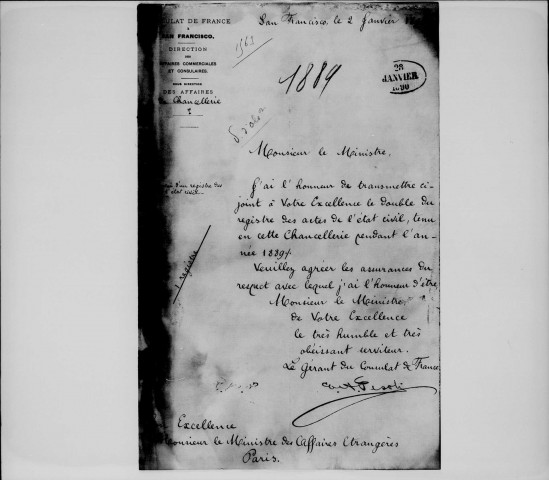 ULAT DE FRANCE
À
SAN FRANCISCO.
DIRECTION
DES
AFFAIRES COMMERCIALES
ET CONSULAIRES.
SOUS DIRECTION
DES AFFAIRES
Chancellerie
San Francisco, le 2 Janvier
28
JANVIER
1890
1889
Monsieur le Ministre,
d'un registre des
état civil
J'ai l'honneur de transmettre ci-
joint à Votre Excellence le double du
registre des actes de l'état civil, tenu
en cette Chancellerie pendant l'an-
née 1889.
1 registre
Veuillez agréer les assurances du
respect avec lequel j'ai l'honneur d'être
Monsieur le Ministre,
de Votre Excellence
le très humble et très
obéissant serviteur.
Le Gérant du Consulat de France
Excellence
Monsieur le Ministre des Affaires Etrangères
Paris.